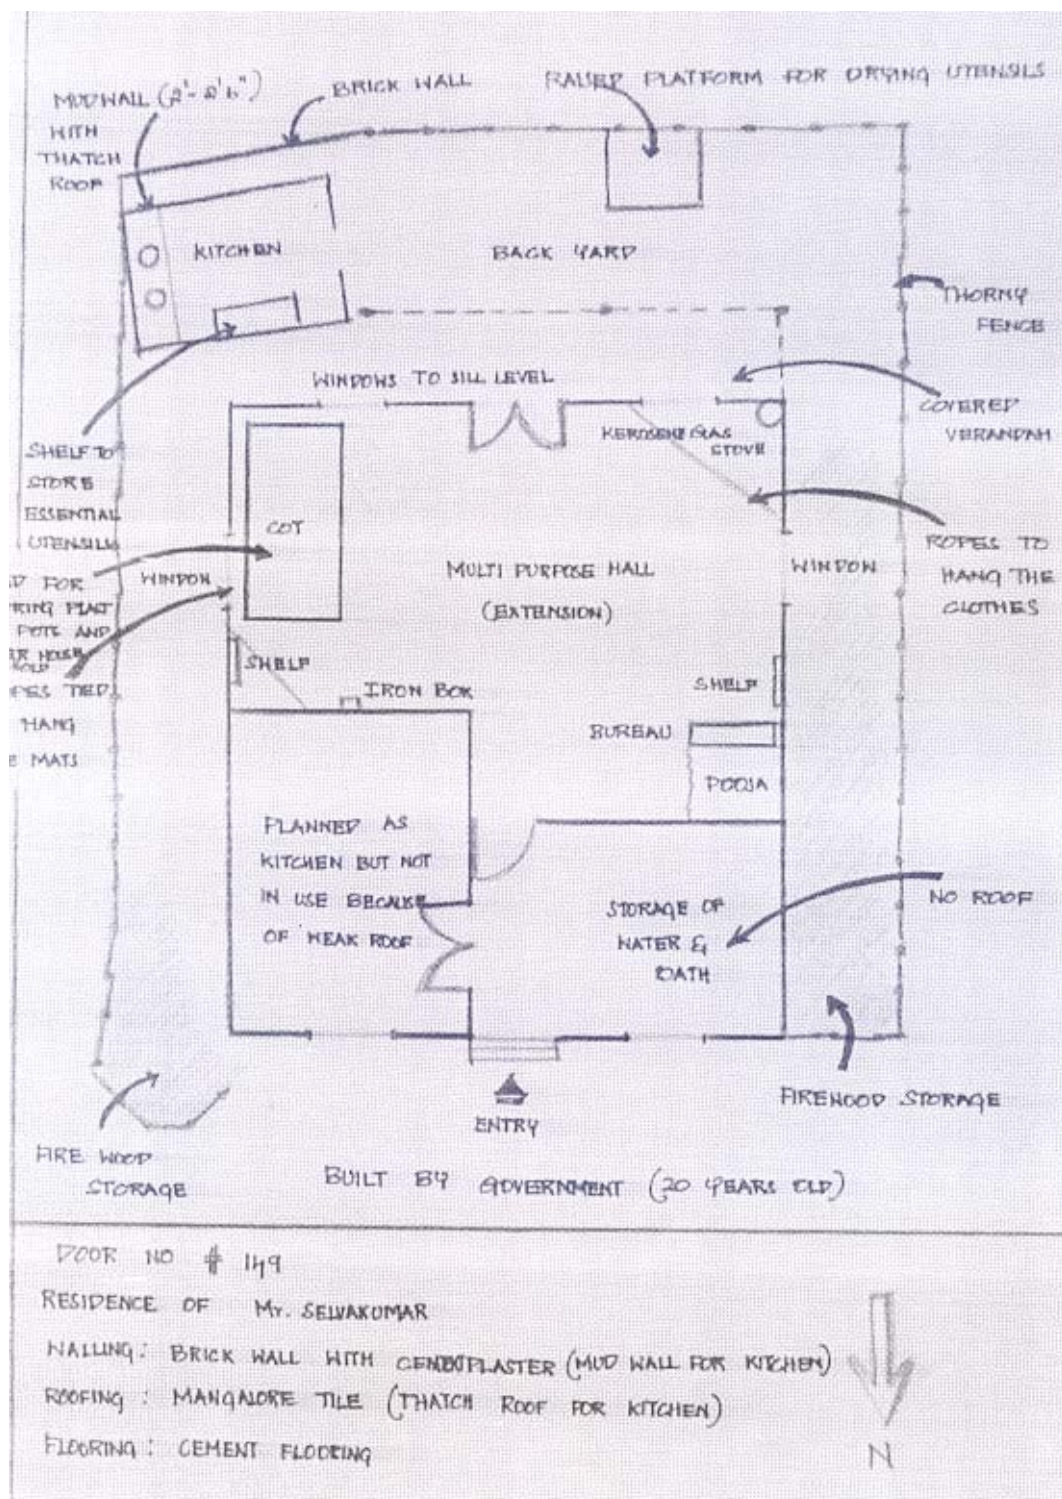 MUDWALL (2'-2'6")
WITH
THATCH
ROOF
BRICK WALL
RAISED PLATFORM FOR DRYING UTENSILS
KITCHEN
BACK YARD
THORNY
FENCE
WINDOWS TO SILL LEVEL
COVERED
VERANDAH
KEROSENE GAS
STOVE
SHELF TO
STORE
ESSENTIAL
UTENSILS
COT
ROPES TO
HANG THE
CLOTHES
FOR
PLAST
POTS AND
HOUSE
TIED
HANG
MATS
WINDOW
MULTI PURPOSE HALL
(EXTENSION)
WINDOW
SHELF
IRON BOX
SHELF
BUREAU
POOJA
PLANNED AS
KITCHEN BUT NOT
IN USE BECAUSE
OF WEAK ROOF
STORAGE OF
WATER &
BATH
NO ROOF
ENTRY
FIREWOOD STORAGE
FIRE WOOD
STORAGE
BUILT BY GOVERNMENT (20 YEARS OLD)
DOOR NO # 149
RESIDENCE OF Mr. SELVAKUMAR
WALLING: BRICK WALL WITH PLASTER (MUD WALL FOR KITCHEN)
ROOFING: MANGALORE TILE (THATCH ROOF FOR KITCHEN)
FLOORING: CEMENT FLOORING
N